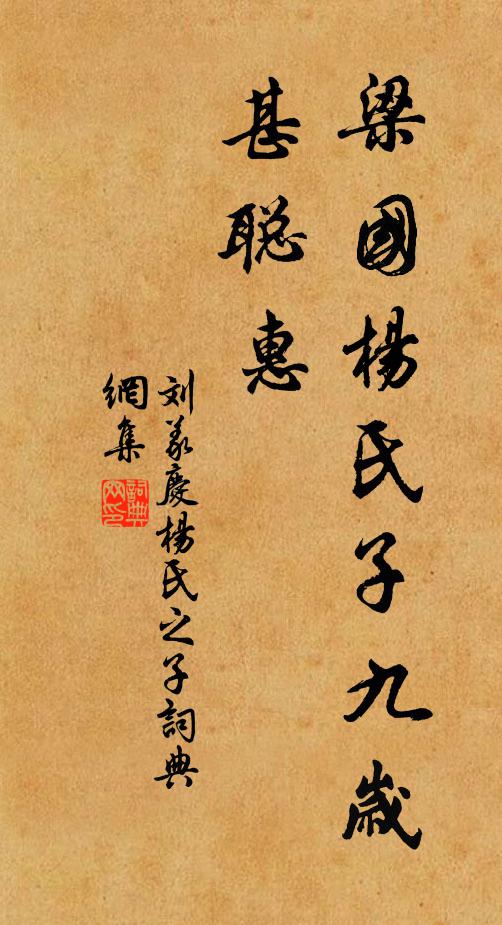 梁國楊氏子九歲
甚聡惠
刘義慶楊氏之子詞典
網集
詞典
网印